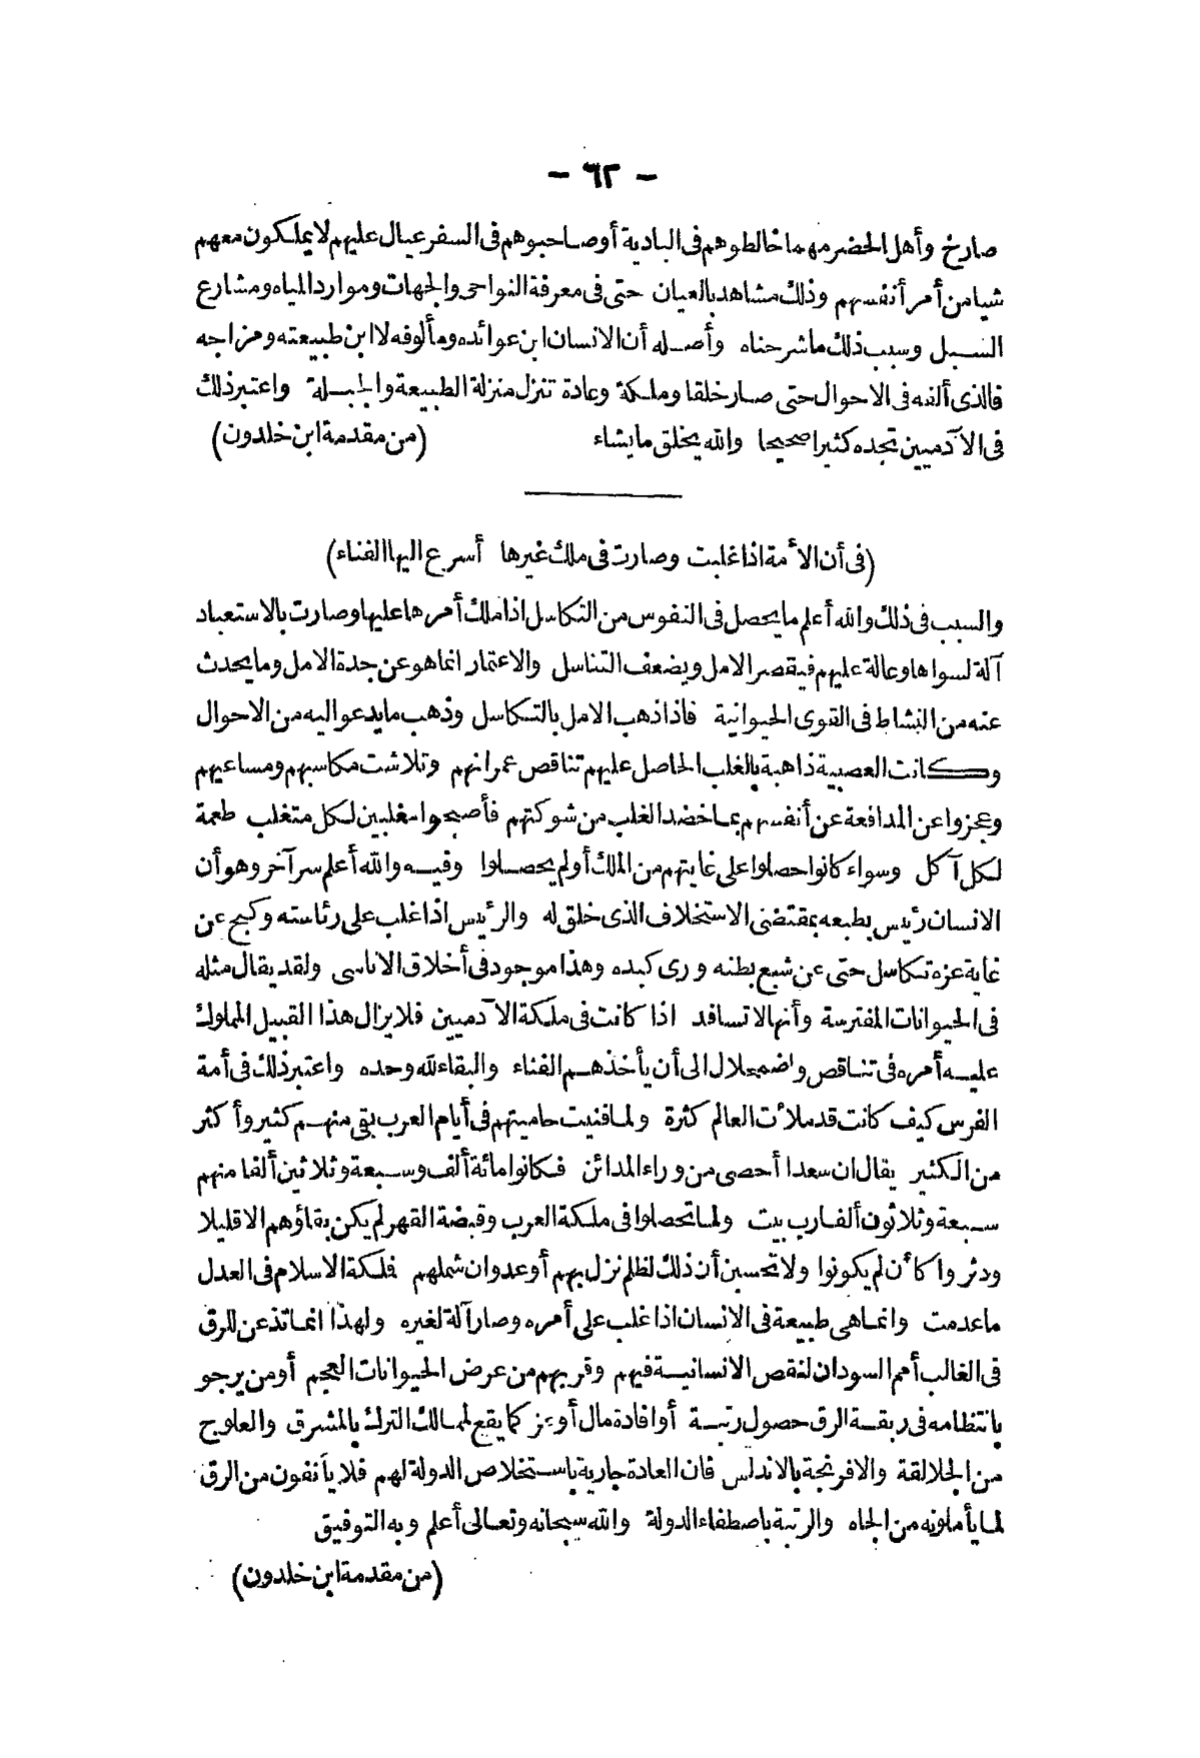 — ٦٢ —
صارخ وأهل الحضر مهما خالطوهم فى البادية أو صاحبوهم فى السفر عيال عليهم لا يملكون معهم
شيا من أمر أنفسهم وذلك مشاهد بالعيان حتى فى معرفة النواحى والجهات وموارد المياه ومشارع
السبل وسبب ذلك ما شرحناه وأصله أن الانسان ابن عوائده ومألوفه لا ابن طبيعته ومزاجه
فالذى ألفه فى الاحوال حتى صار خلقا وملكة وعادة تنزل منزلة الطبيعة والجبلة واعتبر ذلك
فى الآدميين تجده كثيرا صحيحا والله يخلق ما يشاء (من مقدمة ابن خلدون)
(فى أن الأمة اذا غلبت وصارت فى ملك غيرها أسرع اليها الفناء)
والسبب فى ذلك والله أعلم ما يحصل فى النفوس من التكاسل اذا ملك أمرها عليها وصارت بالاستعباد
آلة لسواها وعالة عليهم فيقصر الامل ويضعف التناسل والاعتمار انما هو عن جدة الامل وما يحدث
عنه من النشاط فى القوى الحيوانية فاذا ذهب الامل بالتكاسل وذهب ما يدعو اليه من الاحوال
وكانت العصبية ذاهبة بالغلب الحاصل عليهم تناقص عمرانهم وتلاشت مكاسبهم ومساعيهم
وعجزوا عن المدافعة عن أنفسهم بما خضد الغلب من شوكتهم فأصبحوا مغلبين لكل متغلب طعمة
لكل آكل وسواء كانوا حصلوا على غايتهم من الملك أو لم يحصلوا وفيه والله أعلم سر آخر وهو أن
الانسان رئيس بطبعه بمقتضى الاستخلاف الذى خلق له والرئيس اذا غلب على رئاسته وكبح عن
غاية عزه تكاسل حتى عن شبع بطنه ورى كبده وهذا موجود فى أخلاق الاناسى ولقد يقال مثله
فى الحيوانات المفترسة وأنها لا تسافد اذا كانت فى ملكة الآدميين فلا يزال هذا القبيل المملوك
عليه أمره فى تناقص واضمحلال الى أن يأخذهم الفناء والبقاء لله وحده واعتبر ذلك فى أمة
الفرس كيف كانت قد ملأت العالم كثرة ولما فنيت حاميتهم فى أيام العرب بقى منهم كثير وأكثر
من الكثير يقال ان سعدا أحصى من وراء المدائن فكانوا مائة ألف وسبعة وثلاثين ألفا منهم
سبعة وثلاثون ألفا رب بيت ولما تحصلوا فى ملكة العرب وقبضة القهر لم يكن بقاؤهم الا قليلا
ودثروا كأن لم يكونوا ولا تحسبن أن ذلك لظلم نزل بهم أو عدوان شملهم فملكة الاسلام فى العدل
ما عدمت وانما هى طبيعة فى الانسان اذا غلب على أمره وصار آلة لغيره ولهذا انما تذعن للرق
فى الغالب أمم السودان لنقص الانسانية فيهم وقربهم من عرض الحيوانات العجم أو من يرجو
بانتظامه فى ربقة الرق حصول رتبة أو افادة مال أو عز كما يقع لممالك الترك بالمشرق والعلوج
من الجلالقة والافرنجة بالاندلس فان العادة جارية باستخلاص الدولة لهم فلا يأنفون من الرق
لما يأملونه من الجاه والرتبة باصطفاء الدولة والله سبحانه وتعالى أعلم وبه التوفيق
(من مقدمة ابن خلدون)